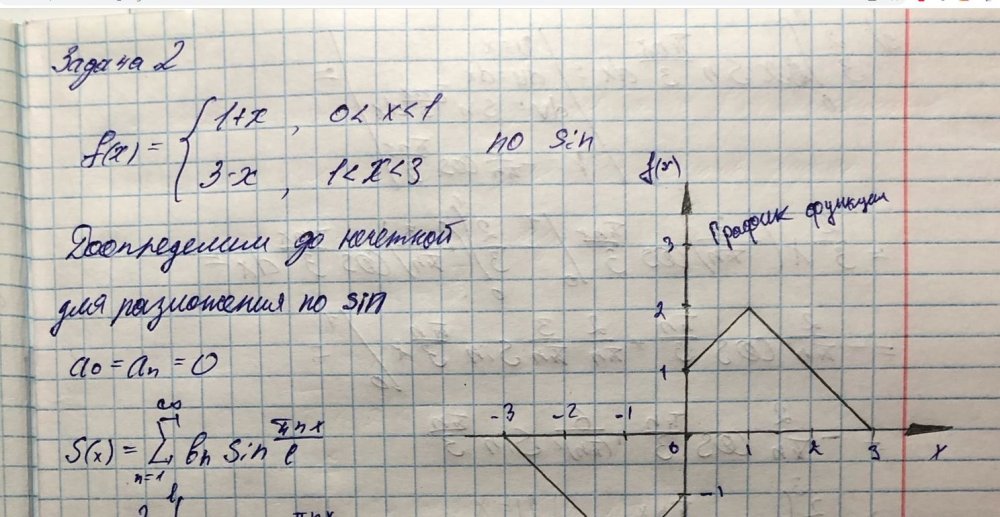 Задача 2
f(x) = { 1+x , 0 < x < 1
3-x , 1 < x < 3
по sin
Доопределим до нечетной
для разложения по sin
a₀ = aₙ = 0
S(x) = ∑ₙ₌₁^∞ bₙ sin πnx/l
f(x)
График функции
3
2
1
-3 -2 -1 0 1 2 3 x
-1